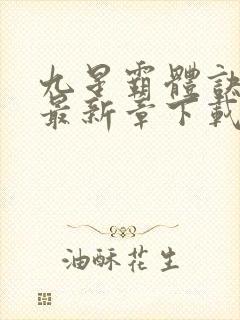 九星霸體訣
最新章下載
油酥花生